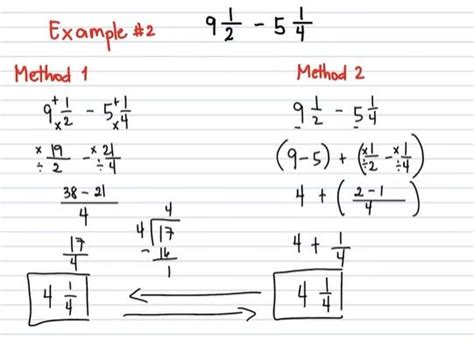 Example #2 9 1/2 - 5 1/4
Method 1
9 + 1/× 2 - 5 + 1/× 4
× 19/÷ 2 - × 21/÷ 4
38 - 21/4
17/4
4
4 ) 17
- 16
1
4 1/4
Method 2
9 1/2 - 5 1/4
(9-5) + (×1/÷2 - ×1/÷4)
4 + (2-1/4)
4 + 1/4
4 1/4